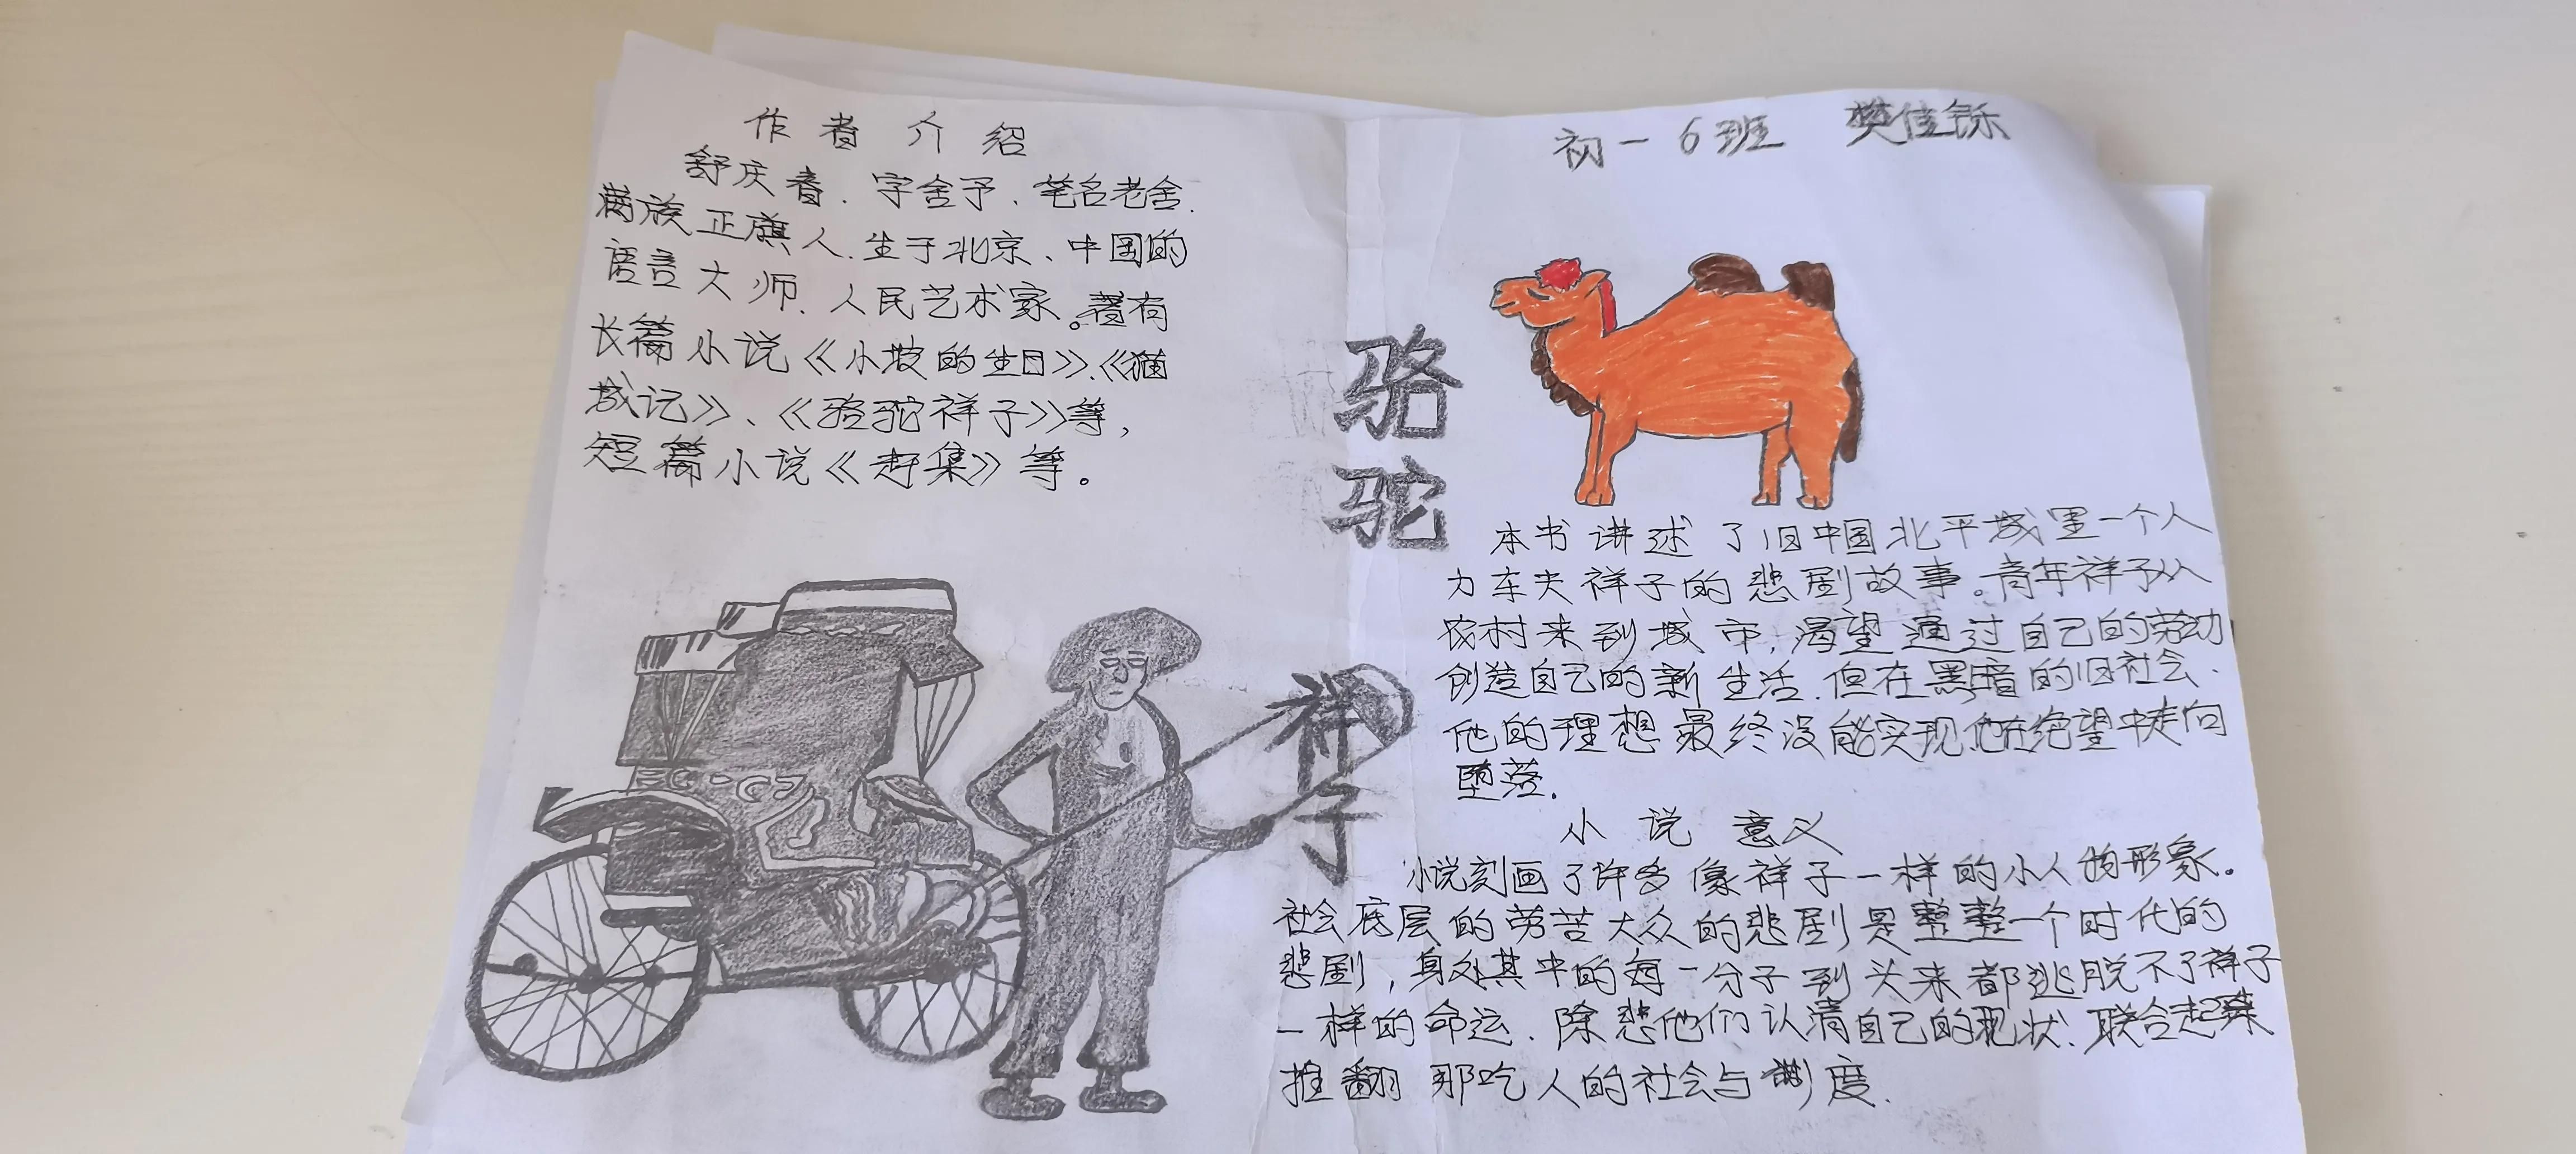 作者介绍
舒庆春.字舍予、笔名老舍.
满族正旗人.生于北京、中国的
语言大师.人民艺术家。著有
长篇小说《小坡的生日》、《猫
城记》、《骆驼祥子》等,
短篇小说《赶集》等。
骆
驼
祥
子
初一6班 樊佳铄
本书讲述了旧中国北平城里一个人
力车夫祥子的悲剧故事。青年祥子从
农村来到城市,渴望通过自己的劳动
创造自己的新生活.但在黑暗的旧社会.
他的理想最终没能实现他在绝望中走向
堕落.
小说意义
小说刻画了许多像祥子一样的小人物形象。
社会底层的劳苦大众的悲剧是整整一个时代的
悲剧,身处其中的每一分子到头来都逃脱不了祥子
一样的命运.除悲他们认清自己的现状.联合起来
推翻那吃人的社会与制度.